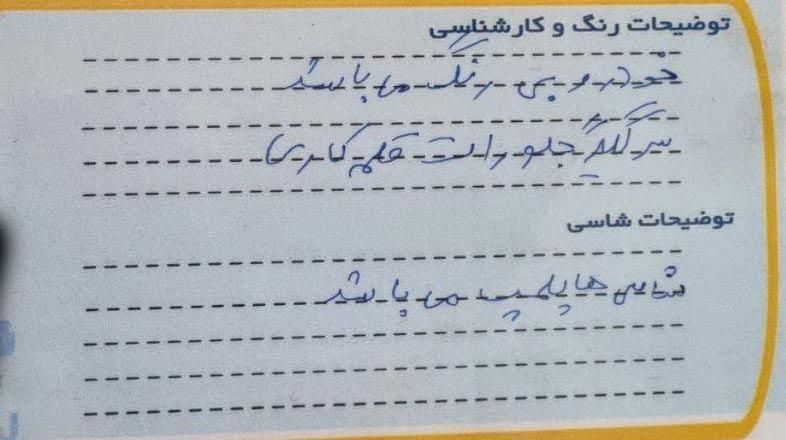 توضیحات رنگ و کارشناسی
خودرو بی رنگ می باشد
سر گلگیر جلو راست قلم کاری
توضیحات شاسی
شاسی ها پلمپ می باشد